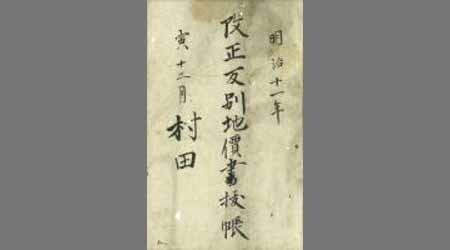 明治十一年
改正反別地價書抜帳
寅十二月
村田